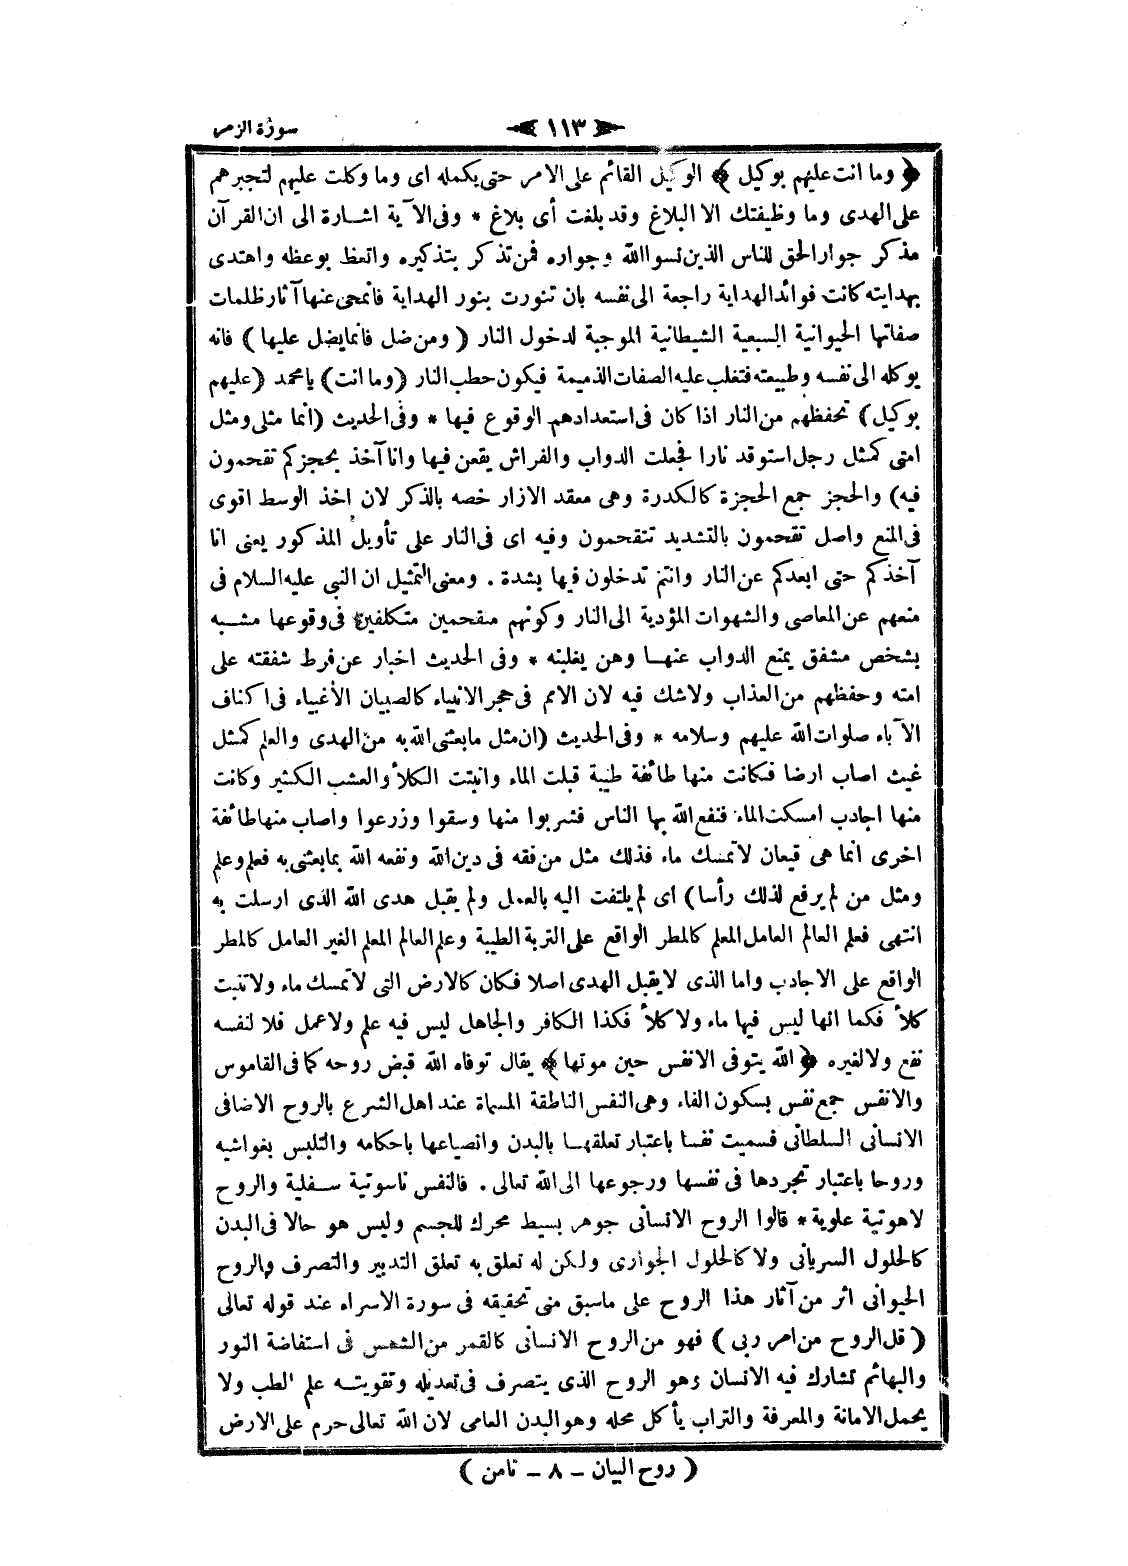 سورة الزمر
١١٣
﴿ وما انت عليهم بوكيل ﴾ الوكيل القائم على الامر حتى يكمله اى وما وكلت عليهم لتجبرهم
على الهدى وما وظيفتك الا البلاغ وقد بلغت أى بلاغ * وفى الآية اشارة الى ان القرآن
مذكر جوار الحق للناس الذين نسوا الله وجواره فمن تذكر بتذكيره واتعظ بوعظه واهتدى
بهدايته كانت فوائد الهداية راجعة الى نفسه بان تنورت بنور الهداية فانمحى عنها آثار ظلمات
صفاتها الحيوانية السبعية الشيطانية الموجبة لدخول النار ( ومن ضل فانما يضل عليها ) فانه
يوكله الى نفسه وطبيعته فتغلب عليه الصفات الذميمة فيكون حطب النار (وما انت) يا محمد (عليهم
بوكيل) تحفظهم من النار اذا كان فى استعدادهم الوقوع فيها * وفى الحديث (انما مثلى ومثل
امتى كمثل رجل استوقد نارا فجعلت الدواب والفراش يقعن فيها وانا آخذ بحجزكم تقحمون
فيه) والحجز جمع الحجزة كالكدرة وهى معقد الازار خصه بالذكر لان اخذ الوسط اقوى
فى المنع واصل تقحمون بالتشديد تتقحمون وفيه اى فى النار على تأويل المذكور يعنى انا
آخذكم حتى ابعدكم عن النار وانتم تدخلون فيها بشدة . ومعنى التمثيل ان النبى عليه السلام فى
منعهم عن المعاصى والشهوات المؤدية الى النار وكونهم متقحمين متكلفين فى وقوعها مشبه
بشخص مشفق يمنع الدواب عنها وهن يغلبنه * وفى الحديث اخبار عن فرط شفقته على
امته وحفظهم من العذاب ولاشك فيه لان الامم فى حجر الانبياء كالصبيان الأغبياء فى اكناف
الآباء صلوات الله عليهم وسلامه * وفى الحديث (ان مثل مابعثنى الله به من الهدى والعلم كمثل
غيث اصاب ارضا فكانت منها طائفة طيبة قبلت الماء وانبتت الكلأ والعشب الكثير وكانت
منها اجادب امسكت الماء فنفع الله بها الناس فشربوا منها وسقوا وزرعوا واصاب منها طائفة
اخرى انما هى قيعان لاتمسك ماء فذلك مثل من فقه فى دين الله ونفعه الله بما بعثنى به فعلم وعلم
ومثل من لم يرفع لذلك رأسا) اى لم يلتفت اليه بالعمل ولم يقبل هدى الله الذى ارسلت به
انتهى فعلم العالم العامل المعلم كالمطر الواقع على التربة الطيبة وعلم العالم المعلم الغير العامل كالمطر
الواقع على الاجادب واما الذى لايقبل الهدى اصلا فكان كالارض التى لاتمسك ماء ولاتنبت
كلأ فكما انها ليس فيها ماء ولاكلأ فكذا الكافر والجاهل ليس فيه علم ولاعمل فلا لنفسه
نفع ولالغيره ﴿ الله يتوفى الانفس حين موتها ﴾ يقال توفاه الله قبض روحه كما فى القاموس
والانفس جمع نفس بسكون الفاء وهى النفس الناطقة المسماة عند اهل الشرع بالروح الاضافى
الانسانى السلطانى فسميت نفسا باعتبار تعلقها بالبدن وانصياعها باحكامه والتلبس بغواشيه
وروحا باعتبار تجردها فى نفسها ورجوعها الى الله تعالى . فالنفس ناسوتية سفلية والروح
لاهوتية علوية * قالوا الروح الانسانى جوهر بسيط محرك للجسم وليس هو حالا فى البدن
كالحلول السريانى ولا كالحلول الجوارى ولكن له تعلق به تعلق التدبير والتصرف والروح
الحيوانى اثر من آثار هذا الروح على ماسبق منى تحقيقه فى سورة الاسراء عند قوله تعالى
( قل الروح من امر ربى ) فهو من الروح الانسانى كالقمر من الشمس فى استفاضة النور
والبهائم تشارك فيه الانسان وهو الروح الذى يتصرف فى تعديله وتقويته علم الطب ولا
يحمل الامانة والمعرفة والتراب يأكل محله وهو البدن العامى لان الله تعالى حرم على الارض
( روح البيان – ٨ – ثامن )